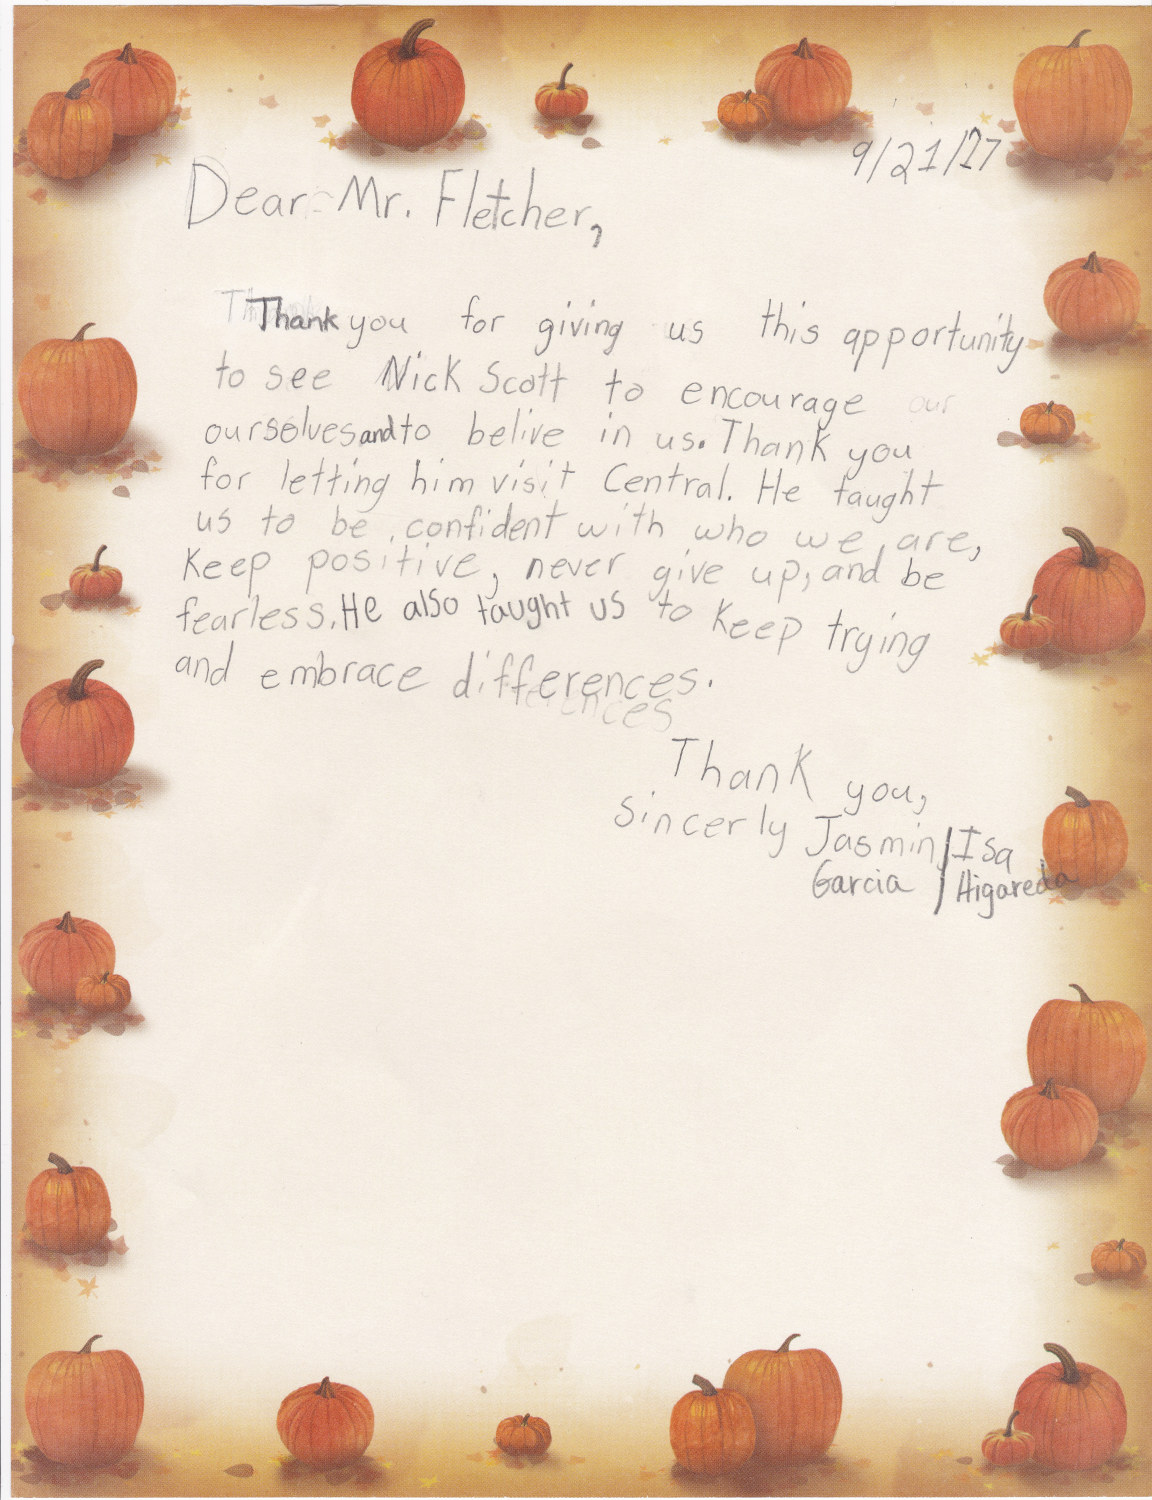 9/21/17
Dear Mr. Fletcher,
Thank you for giving us this opportunity
to see Nick Scott to encourage our
ourselves and to belive in us. Thank you
for letting him visit Central. He taught
us to be confident with who we are,
Keep positive, never give up, and be
fearless. He also taught us to keep trying
and embrace differences.
Thank you,
Sincerly Jasmin / Isa
Garcia / Higareda